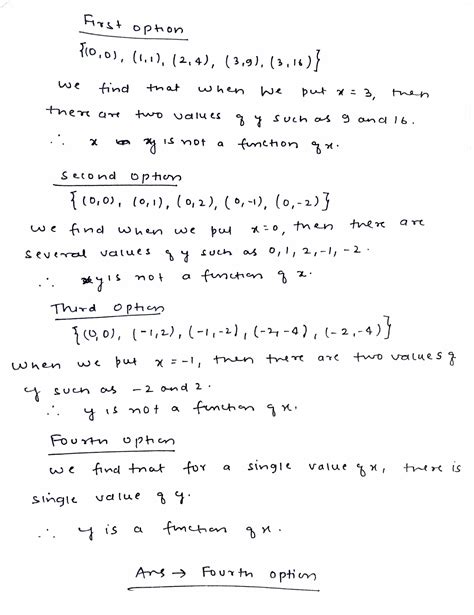 First option
{(0,0), (1,1), (2,4), (3,9), (3,16)}
We find that when we put x = 3, then
there are two values of y such as 9 and 16.
∴ x y is not a function of x.
Second option
{(0,0), (0,1), (0,2), (0,-1), (0,-2)}
We find when we put x=0, then there are
several values of y such as 0, 1, 2, -1, -2.
∴ y is not a function of x.
Third option
{(0,0), (-1,2), (-1,-2), (-2,-4), (-2,-4)}
When we put x = -1, then there are two values of
y such as -2 and 2.
∴ y is not a function of x.
Fourth option
We find that for a single value of x, there is
single value of y.
∴ y is a function of x.
Ans → Fourth option